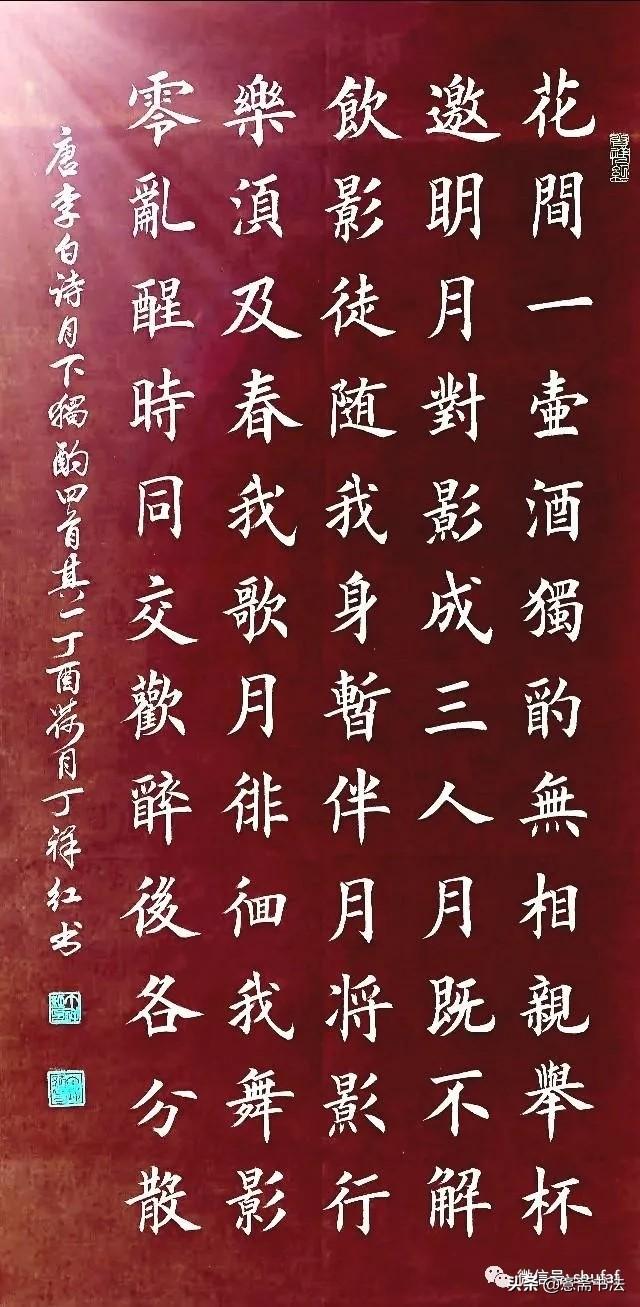 花間一壷酒獨酌無相親舉杯
邀明月對影成三人月既不解
飲影徒随我身暫伴月将影行
樂湏及春我歌月徘徊我舞影
零亂醒時同交歡醉後各分散
唐李白诗月下獨酌四首其一丁酉荷月丁祥红书
微信号: shufaf
头条 @意斋书法